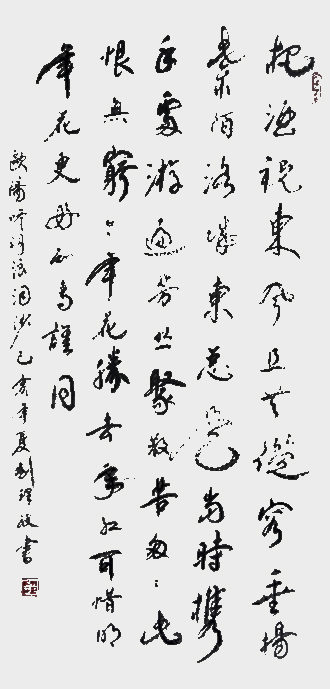 把酒祝東風且共從容垂楊
紫陌洛城東总是當時攜
手處游遍芳丛聚散苦匆々此
恨無窮今年花勝去年红可惜明
年花更好知与誰同
歐陽修詞浪淘沙己亥年夏劉書